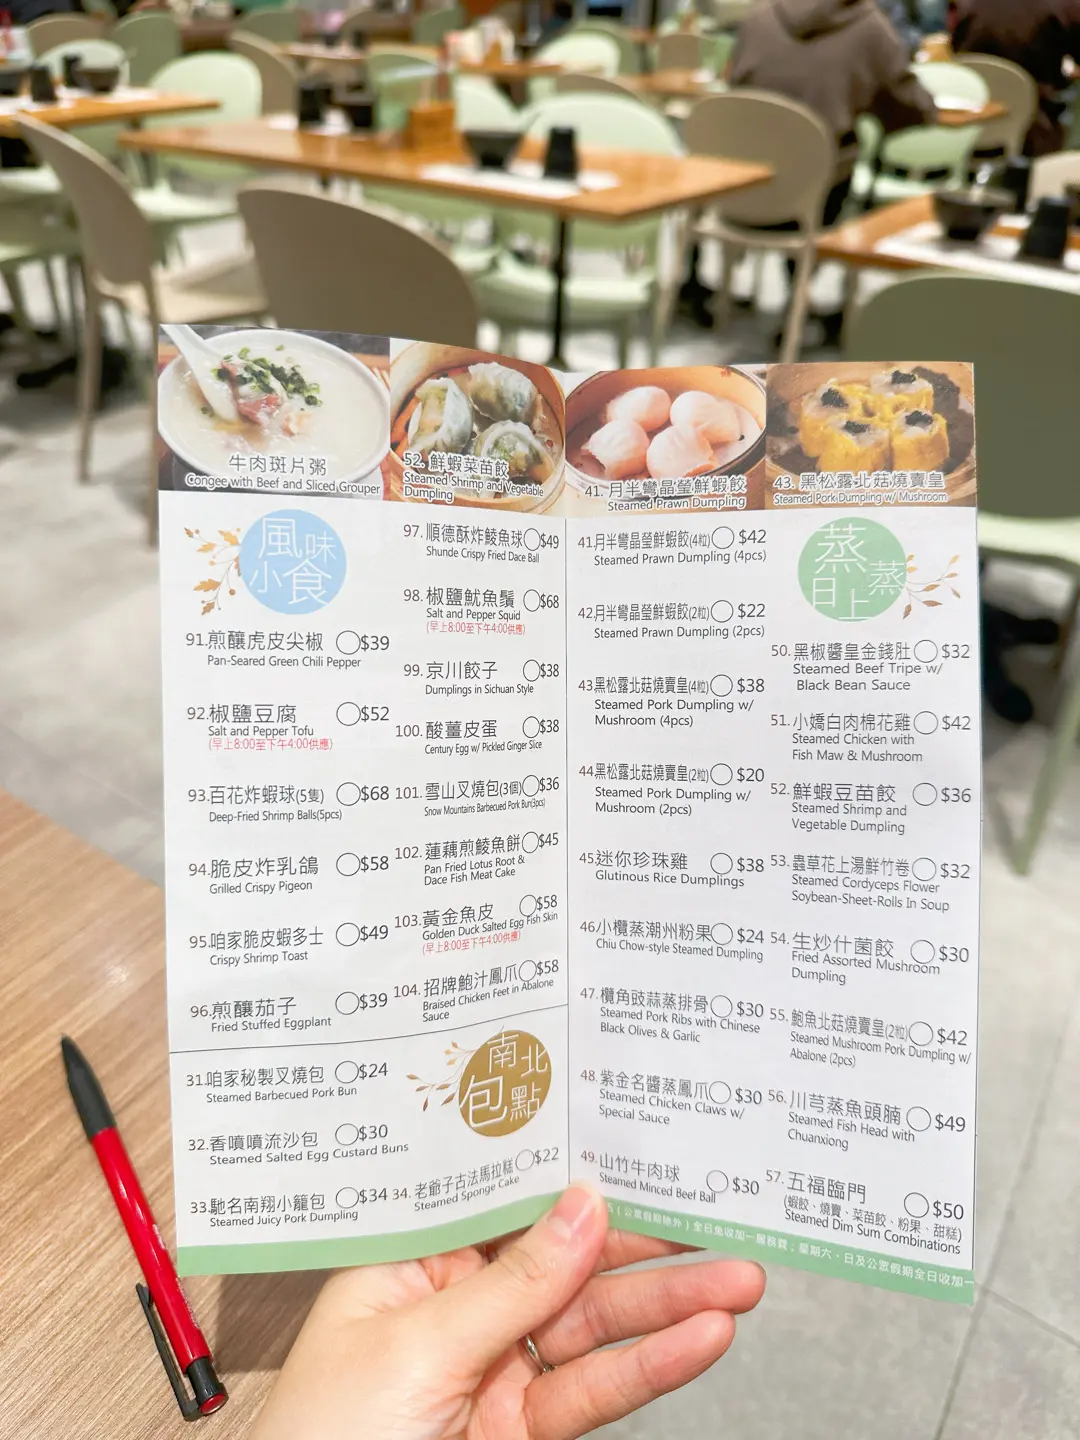 牛肉斑片粥
Congee with Beef and Sliced Grouper
52. 鮮蝦菜苗餃
Steamed Shrimp and Vegetable
Dumpling
41. 月半彎晶瑩鮮蝦餃
Steamed Prawn Dumpling
43. 黑松露北菇燒賣皇
Steamed Pork Dumpling w/ Mushroom
風味
小食
91.煎釀虎皮尖椒 $39
Pan-Seared Green Chili Pepper
92.椒鹽豆腐 $52
Salt and Pepper Tofu
(早上8:00至下午4:00供應)
93.百花炸蝦球(5隻) $68
Deep-Fried Shrimp Balls(5pcs)
94.脆皮炸乳鴿 $58
Grilled Crispy Pigeon
95.咱家脆皮蝦多士 $49
Crispy Shrimp Toast
96.煎釀茄子 $39
Fried Stuffed Eggplant
97. 順德酥炸鯪魚球 $49
Shunde Crispy Fried Dace Ball
98. 椒鹽魷魚鬚 $68
Salt and Pepper Squid
(早上8:00至下午4:00供應)
99. 京川餃子 $38
Dumplings in Sichuan Style
100. 酸薑皮蛋 $38
Century Egg w/ Pickled Ginger Slice
101. 雪山叉燒包(3個) $36
Snow Mountains Barbecued Pork Bun(3pcs)
102. 蓮藕煎鯪魚餅 $45
Pan Fried Lotus Root &
Dace Fish Meat Cake
103. 黃金魚皮 $58
Golden Duck Salted Egg Fish Skin
(早上8:00至下午4:00供應)
104. 招牌鮑汁鳳爪 $58
Braised Chicken Feet in Abalone
Sauce
31.咱家秘製叉燒包 $24
Steamed Barbecued Pork Bun
32.香噴噴流沙包 $30
Steamed Salted Egg Custard Buns
33.馳名南翔小籠包 $34
Steamed Juicy Pork Dumpling
南北
包點
34. 老爺子古法馬拉糕 $22
Steamed Sponge Cake
41.月半彎晶瑩鮮蝦餃(4粒) $42
Steamed Prawn Dumpling (4pcs)
42.月半彎晶瑩鮮蝦餃(2粒) $22
Steamed Prawn Dumpling (2pcs)
43.黑松露北菇燒賣皇(4粒) $38
Steamed Pork Dumpling w/
Mushroom (4pcs)
44.黑松露北菇燒賣皇(2粒) $20
Steamed Pork Dumpling w/
Mushroom (2pcs)
45.迷你珍珠雞 $38
Glutinous Rice Dumplings
46.小欖蒸潮州粉果 $24
Chiu Chow-style Steamed Dumpling
47. 欖角豉蒜蒸排骨 $30
Steamed Pork Ribs with Chinese
Black Olives & Garlic
48. 紫金名醬蒸鳳爪 $30
Steamed Chicken Claws w/
Special Sauce
49. 山竹牛肉球 $30
Steamed Minced Beef Ball
蒸蒸
日上
50. 黑椒醬皇金錢肚 $32
Steamed Beef Tripe w/
Black Bean Sauce
51. 小嬌白肉棉花雞 $42
Steamed Chicken with
Fish Maw & Mushroom
52. 鮮蝦豆苗餃 $36
Steamed Shrimp and
Vegetable Dumpling
53. 蟲草花上湯鮮竹卷 $32
Steamed Cordyceps Flower
Soybean-Sheet-Rolls In Soup
54. 生炒什菌餃 $30
Fried Assorted Mushroom
Dumpling
55. 鮑魚北菇燒賣皇(2粒) $42
Steamed Mushroom Pork Dumpling w/
Abalone (2pcs)
56. 川芎蒸魚頭腩 $49
Steamed Fish Head with
Chuanxiong
57. 五福臨門 $50
(蝦餃、燒賣、菜苗餃、粉果、甜糕)
Steamed Dim Sum Combinations
(公眾假期除外)全日免收加一服務費，星期六、日及公眾假期全日收加一